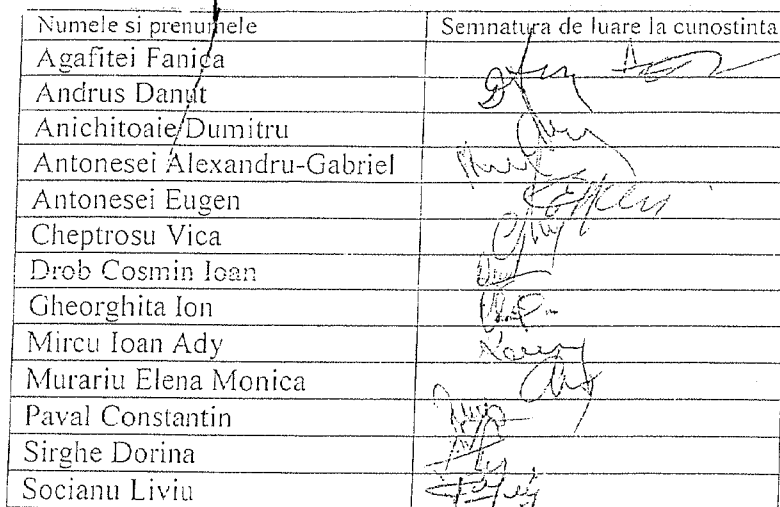 Numele si prenumele Semnatura de luare la cunostinta
Agafitei Fanica
Andrus Danut
Anichitoaie Dumitru
Antonesei Alexandru-Gabriel
Antonesei Eugen
Cheptrosu Vica
Drob Cosmin Ioan
Gheorghita Ion
Mircu Ioan Ady
Murariu Elena Monica
Paval Constantin
Sirghe Dorina
Socianu Liviu